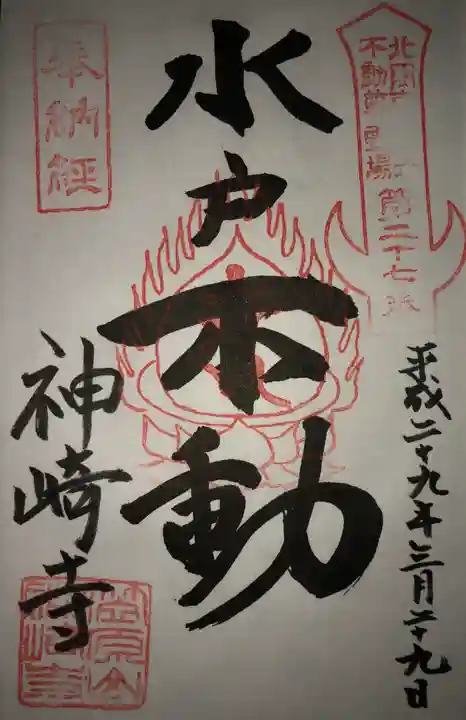 奉納経
水戸不動
北関東
不動尊霊場 第二十七番
平成二十九年三月二十九日
神崎寺